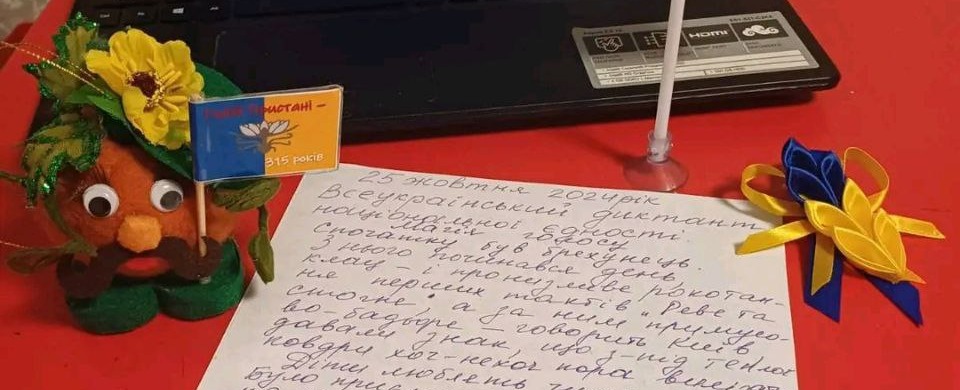 Голій Пристані –
315 років
HDMI
25 жовтня 2024 рік
Всеукраїнський диктант
національної єдності.
Магія голосу
Спочатку був брехунець.
З нього починався день
клац – і пронизливе рокотан-
ня перших тактів „Реве та
стогне", а за ним примусо-
во-бадьоре – говорить Київ
давали знак, що з-під теплої
ковдри хоч-нехоч пора
Діти люблять
Було